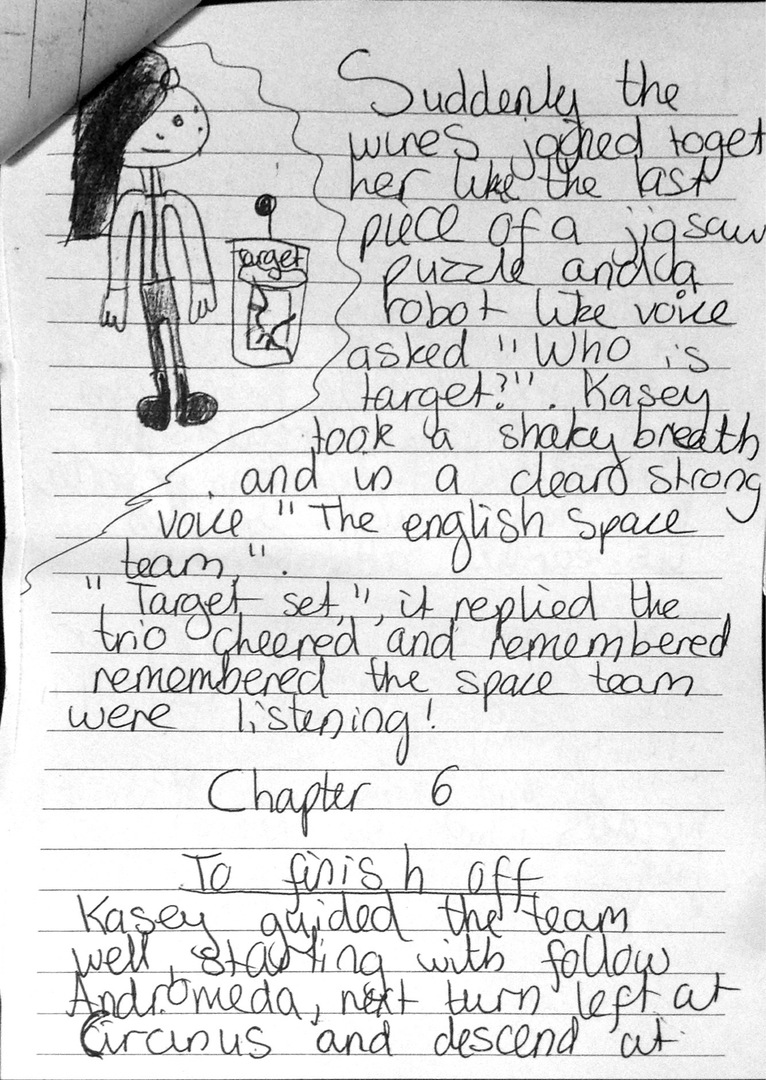 Suddenly the
wires joined toget
her like the last
piece of a jigsaw
puzzle and a
robot like voice
asked "Who is
target?". Kasey
took a shaky breath
and in a clear strong
voice "The english space
team,".
"Target set,", it replied the
trio cheered and remembered
remembered the space team
were listening!
Chapter 6
To finish off
Kasey guided the team
well, starting with follow
Andromeda, next turn left at
Circinus and descend at
Target